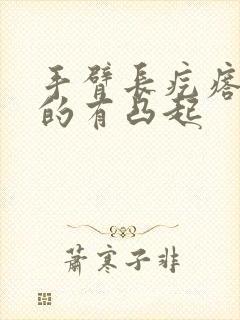 手臂長疙瘩
的有凸起
蕭寒子非